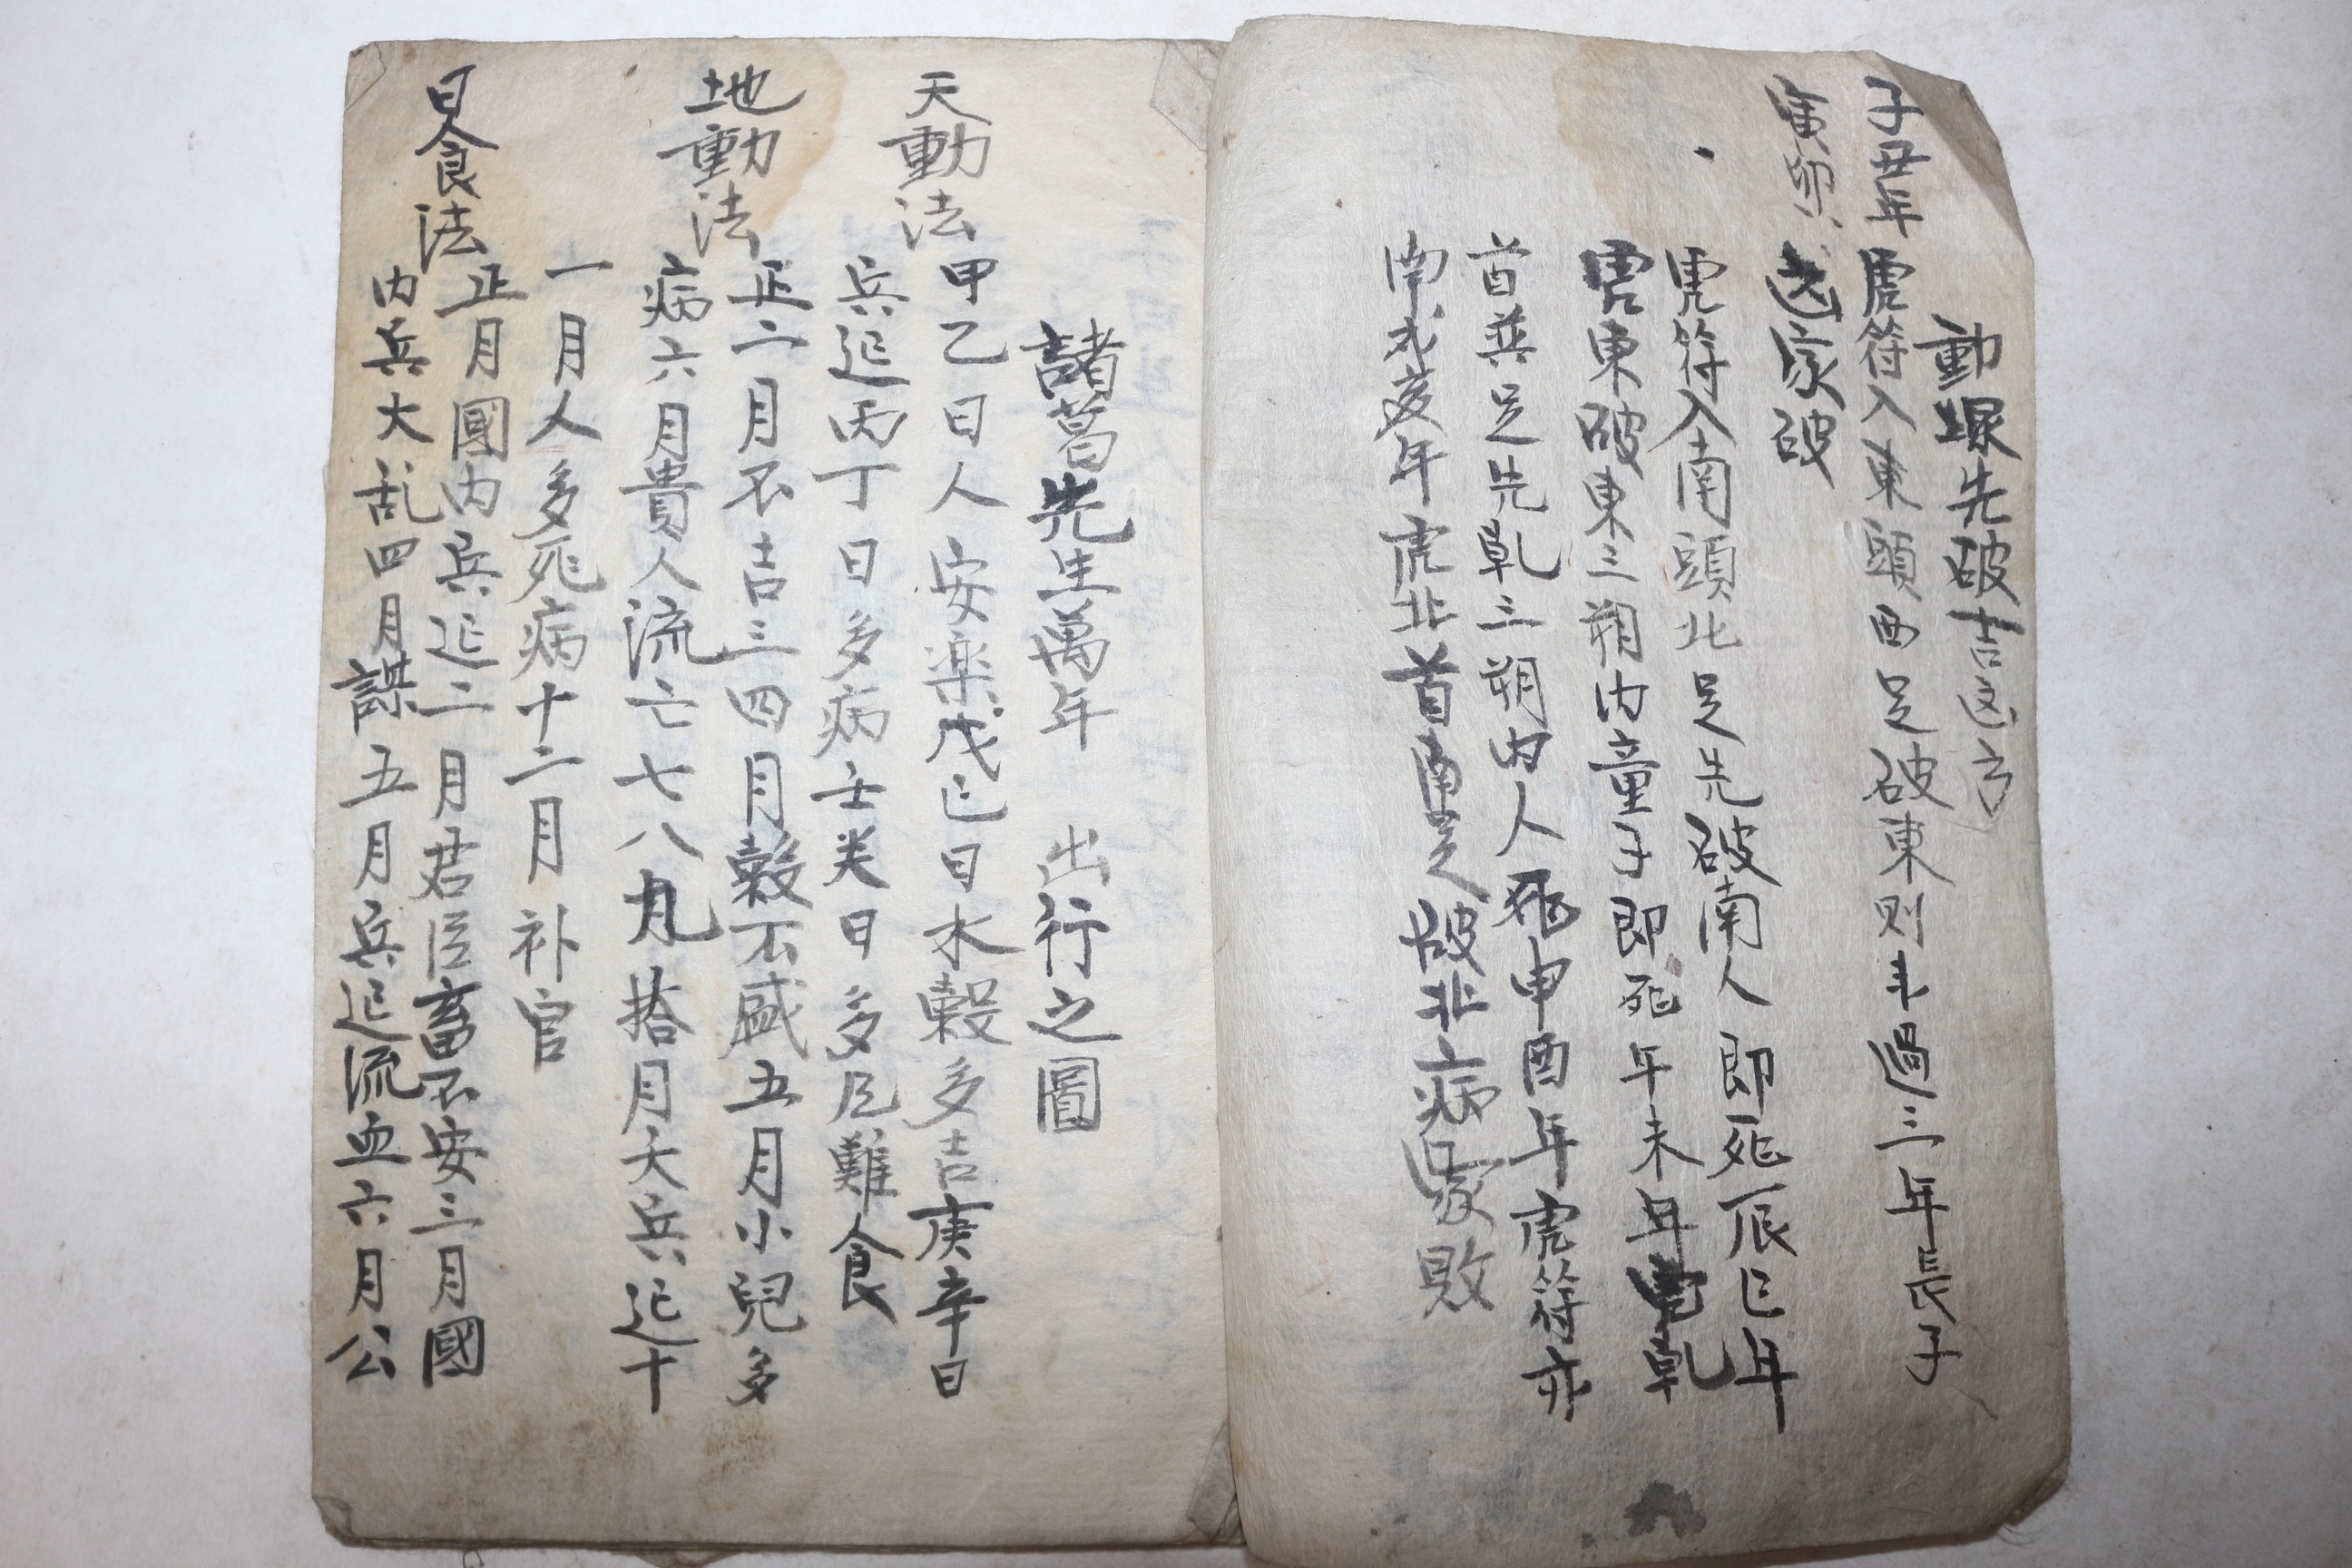 動塚先破吉凶方
子丑年 虎符入東頭西足破東則 三年長子
寅卯
家破
虎符入南頭北足先破南人即死辰巳年
東破東三朔內童子即死午未年 乾
首巽足先乾三朔內人死申酉年虎符亦
南戌亥年虎北首南足破北病 家敗
諸葛先生萬年 出行之圖
天動法 甲乙日人安楽戊己日水穀多吉庚辛日
兵起丙丁日多病壬癸日多厄難食
地動法 正二月不吉三四月穀不盛五月小兒多
病六月貴人流亡七八九月拾月大兵起十
一月人多死病十二月补官
日食法 正月國內兵起二月君臣畜不安三月國
內兵大乱四月謀五月兵起流血六月公